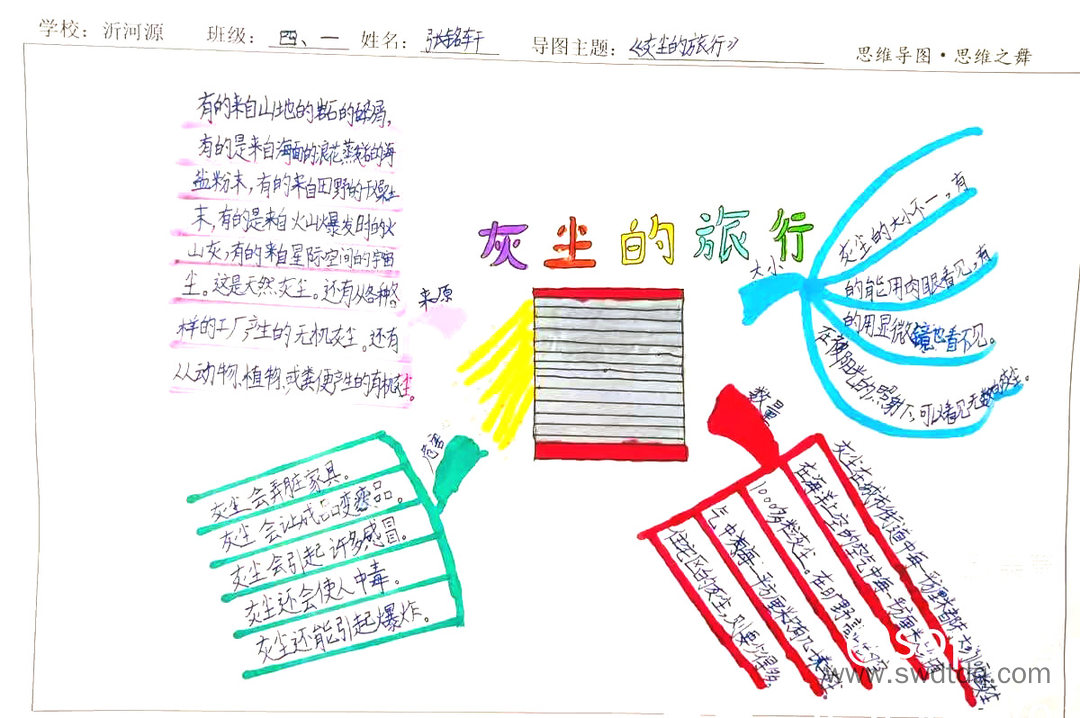 学校：沂河源 班级：四、一 姓名：张铭轩 导图主题：《灰尘的旅行》 思维导图·思维之舞
有的来自山地的岩石的碎屑，
有的是来自海面的浪花蒸发的海
盐粉末，有的来自田野的干燥尘
末，有的是来自火山爆发时的火
山灰，有的来自星际空间的宇宙
尘。这是天然灰尘。还有从各种各
样的工厂产生的无机灰尘。还有
从动物、植物、或粪便产生的有机灰尘。
灰尘的旅行
来源
大小
灰尘的大小不一，有
的能用肉眼看见，有
的用显微镜也看不见。
在阳光的照射下，可以看见无数的灰尘。
危害
灰尘会弄脏家具。
灰尘会让成品变废品。
灰尘会引起许多感冒。
灰尘还会使人中毒。
灰尘还能引起爆炸。
数量
灰尘在城市街道中每一平方厘米都有大约
在海洋上空的空气中每一平方厘米
1000多粒灰尘。在旷野
空气中每一平方厘米有几
住宅区的灰尘，则要少得多。
www.swdtdq.com